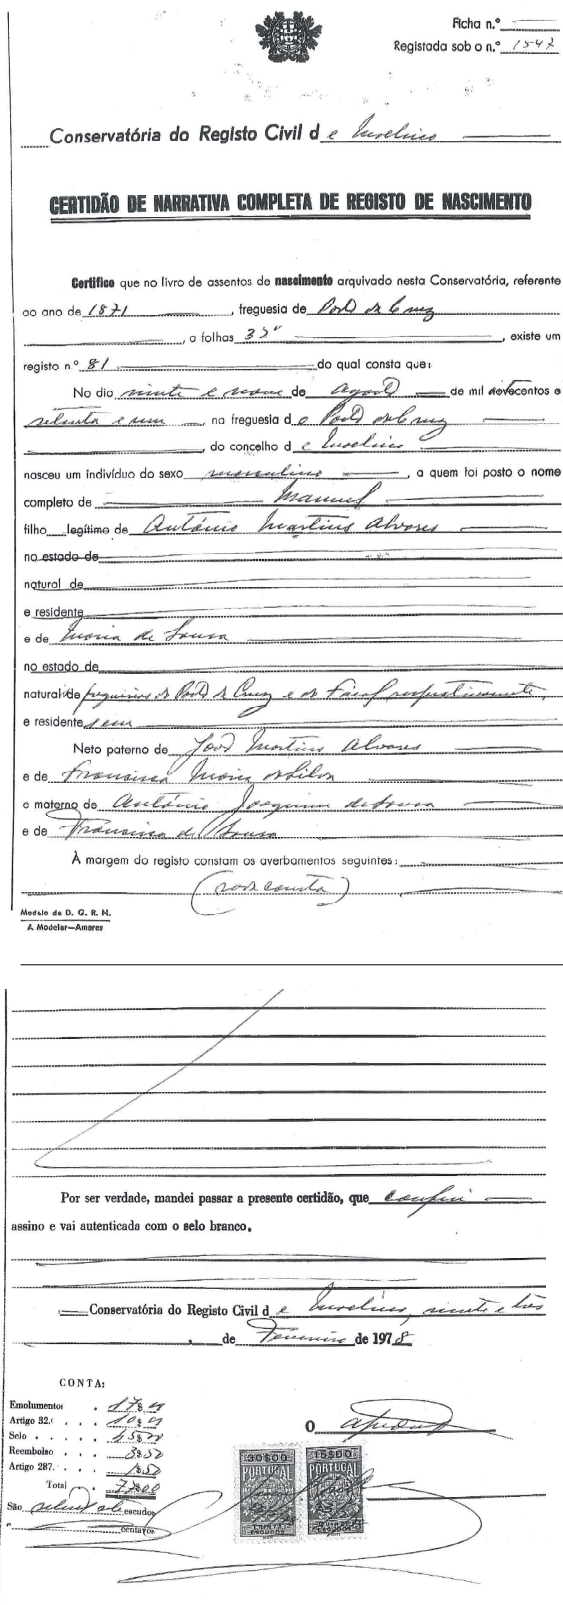 Ficha n.º
Registada sob o n.º 1547
Conservatória do Registo Civil de
CERTIDÃO DE NARRATIVA COMPLETA DE REGISTO DE NASCIMENTO
Certifico que no livro de assentos de nascimento arquivado nesta Conservatória, referente
ao ano de 1871, freguesia de Porto da Cruz
, a folhas 35vº, existe um
registo n.º 81 do qual consta que:
No dia vinte e nove de Agosto de mil oitocentos e
setenta e um, na freguesia do Porto da Cruz
, do concelho de
nasceu um indivíduo do sexo masculino, a quem foi posto o nome
completo de Manuel
filho legítimo de António Martins Alvares
no estado de
natural de
e residente
e de Maria de Sousa
no estado de
natural de freguesias do Porto da Cruz e do Faial respectivamente,
e residente
Neto paterno de João Martins Alvares
e de Francisca Maria
e materno de António Joaquim de Sousa
e de Francisca de Sousa
À margem do registo constam os averbamentos seguintes:
(nada consta)
Modelo da D. G. R. N.
A Modelar—Amares
Por ser verdade, mandei passar a presente certidão, que conferi
assino e vai autenticada com o selo branco.
Conservatória do Registo Civil de vinte e três
de Fevereiro de 1978
CONTA:
Emolumentos . 17$00
Artigo 32.º . . . 10$00
Selo . . . . . 45$00
Reembolso . . . 3$50
Artigo 287.º . . . 1$50
Total . 77$00
São setenta e sete escudos
centavos
O
30$00
PORTUGAL
15$00
PORTUGAL